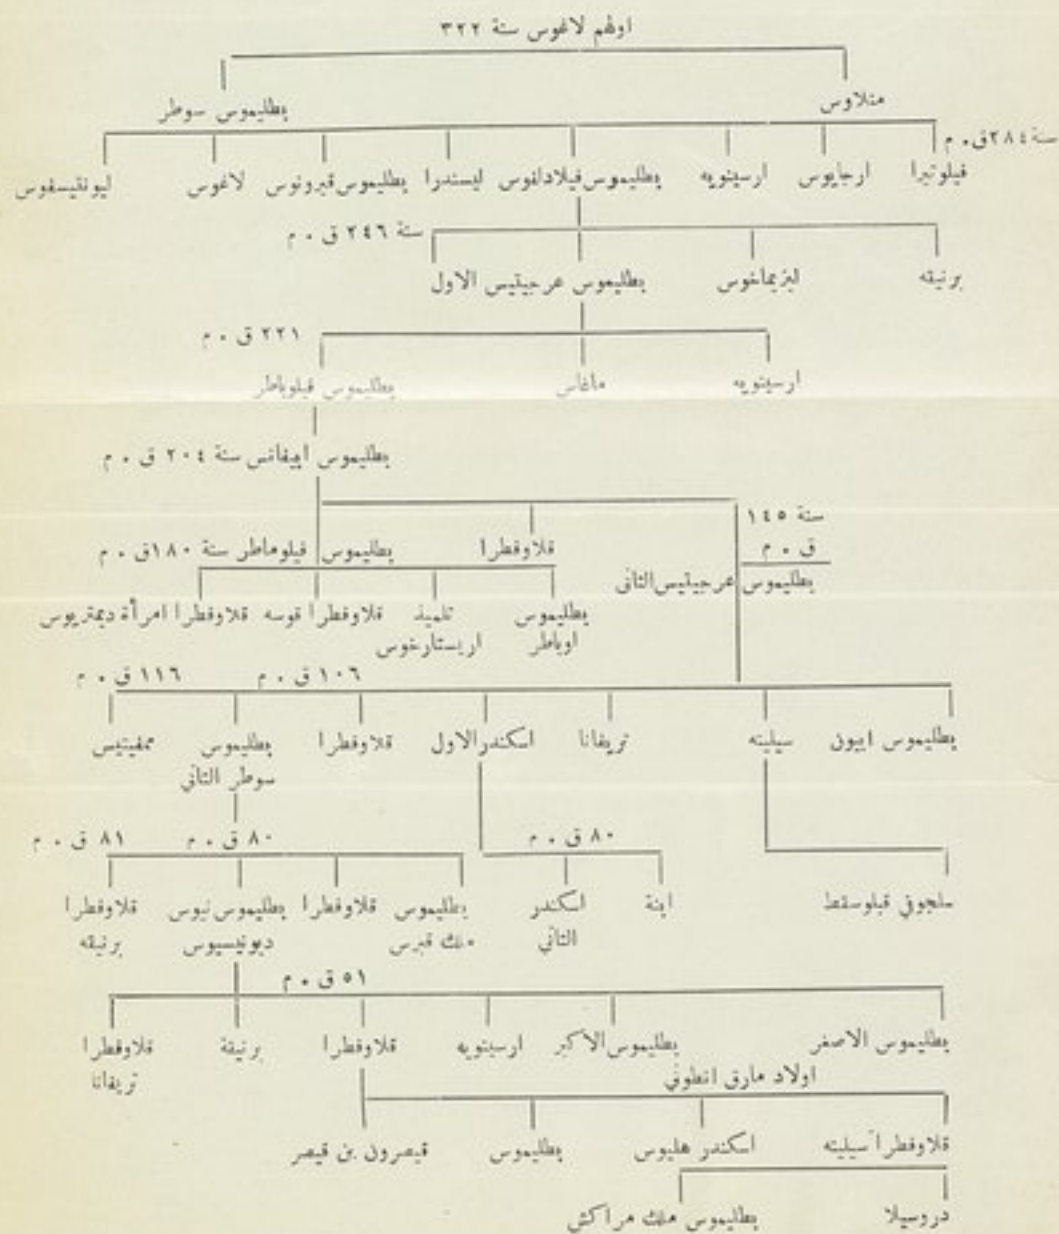 اولهم لاغوس سنة ٣٢٢
منلاوس بطليموس سوطر
سنة ٢٨٤ق ٠ م
فيلوتيرا ارجايوس ارسينويه بطليموس فيلادلفوس ليسندرا بطليموس قيرونوس لاغوس ليونتيسفوس
سنة ٢٤٦ ق ٠ م
برنيقه ليزيماخوس بطليموس عرجيتيس الاول
٢٢١ ق ٠ م
ارسينويه ماغاس بطليموس فيلوباطر
بطليموس ابيفانس سنة ٢٠٤ ق ٠ م
سنة ١٤٥
ق ٠ م
قلاوفطرا بطليموس فيلوماطر سنة ١٨٠ق ٠ م
بطليموس عرجيتيس الثانى
بطليموس تلميذ قلاوفطرا قوسه قلاوفطرا امرأة ديمتريوس
اوباطر اريستارخوس
١٠٦ ق ٠ م ١١٦ ق ٠ م
بطليموس ابيون سيليته تريفانا اسكندر الاول قلاوفطرا بطليموس ممفيتيس
سوطر الثاني
٨٠ ق ٠ م ٨٠ ق ٠ م ٨١ ق ٠ م
سلجوقي قبلوسقط ابنة اسكندر بطليموس قلاوفطرا بطليموس نيوس قلاوفطرا
الثاني ملك قبرس ديونيسيوس برنيقه
٥١ ق ٠ م
بطليموس الاصغر بطليموس الاكبر ارسينويه قلاوفطرا برنيقة قلاوفطرا
تريفانا
اولاد مارق انطوني
قلاوفطرا سيليته اسكندر هليوس بطليموس قيصرون بن قيصر
دروسيلا بطليموس ملك مراكش